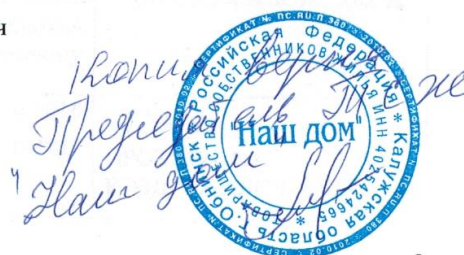 Копия верна
Председатель ТСЖ
"Наш дом"
"Наш дом"
Российская Федерация * Калужская область г. Обнинск *
ТОВАРИЩЕСТВО СОБСТВЕННИКОВ ЖИЛЬЯ ИНН 4025424665 *
СЕРТИФИКАТ № ПС.RU.П.380